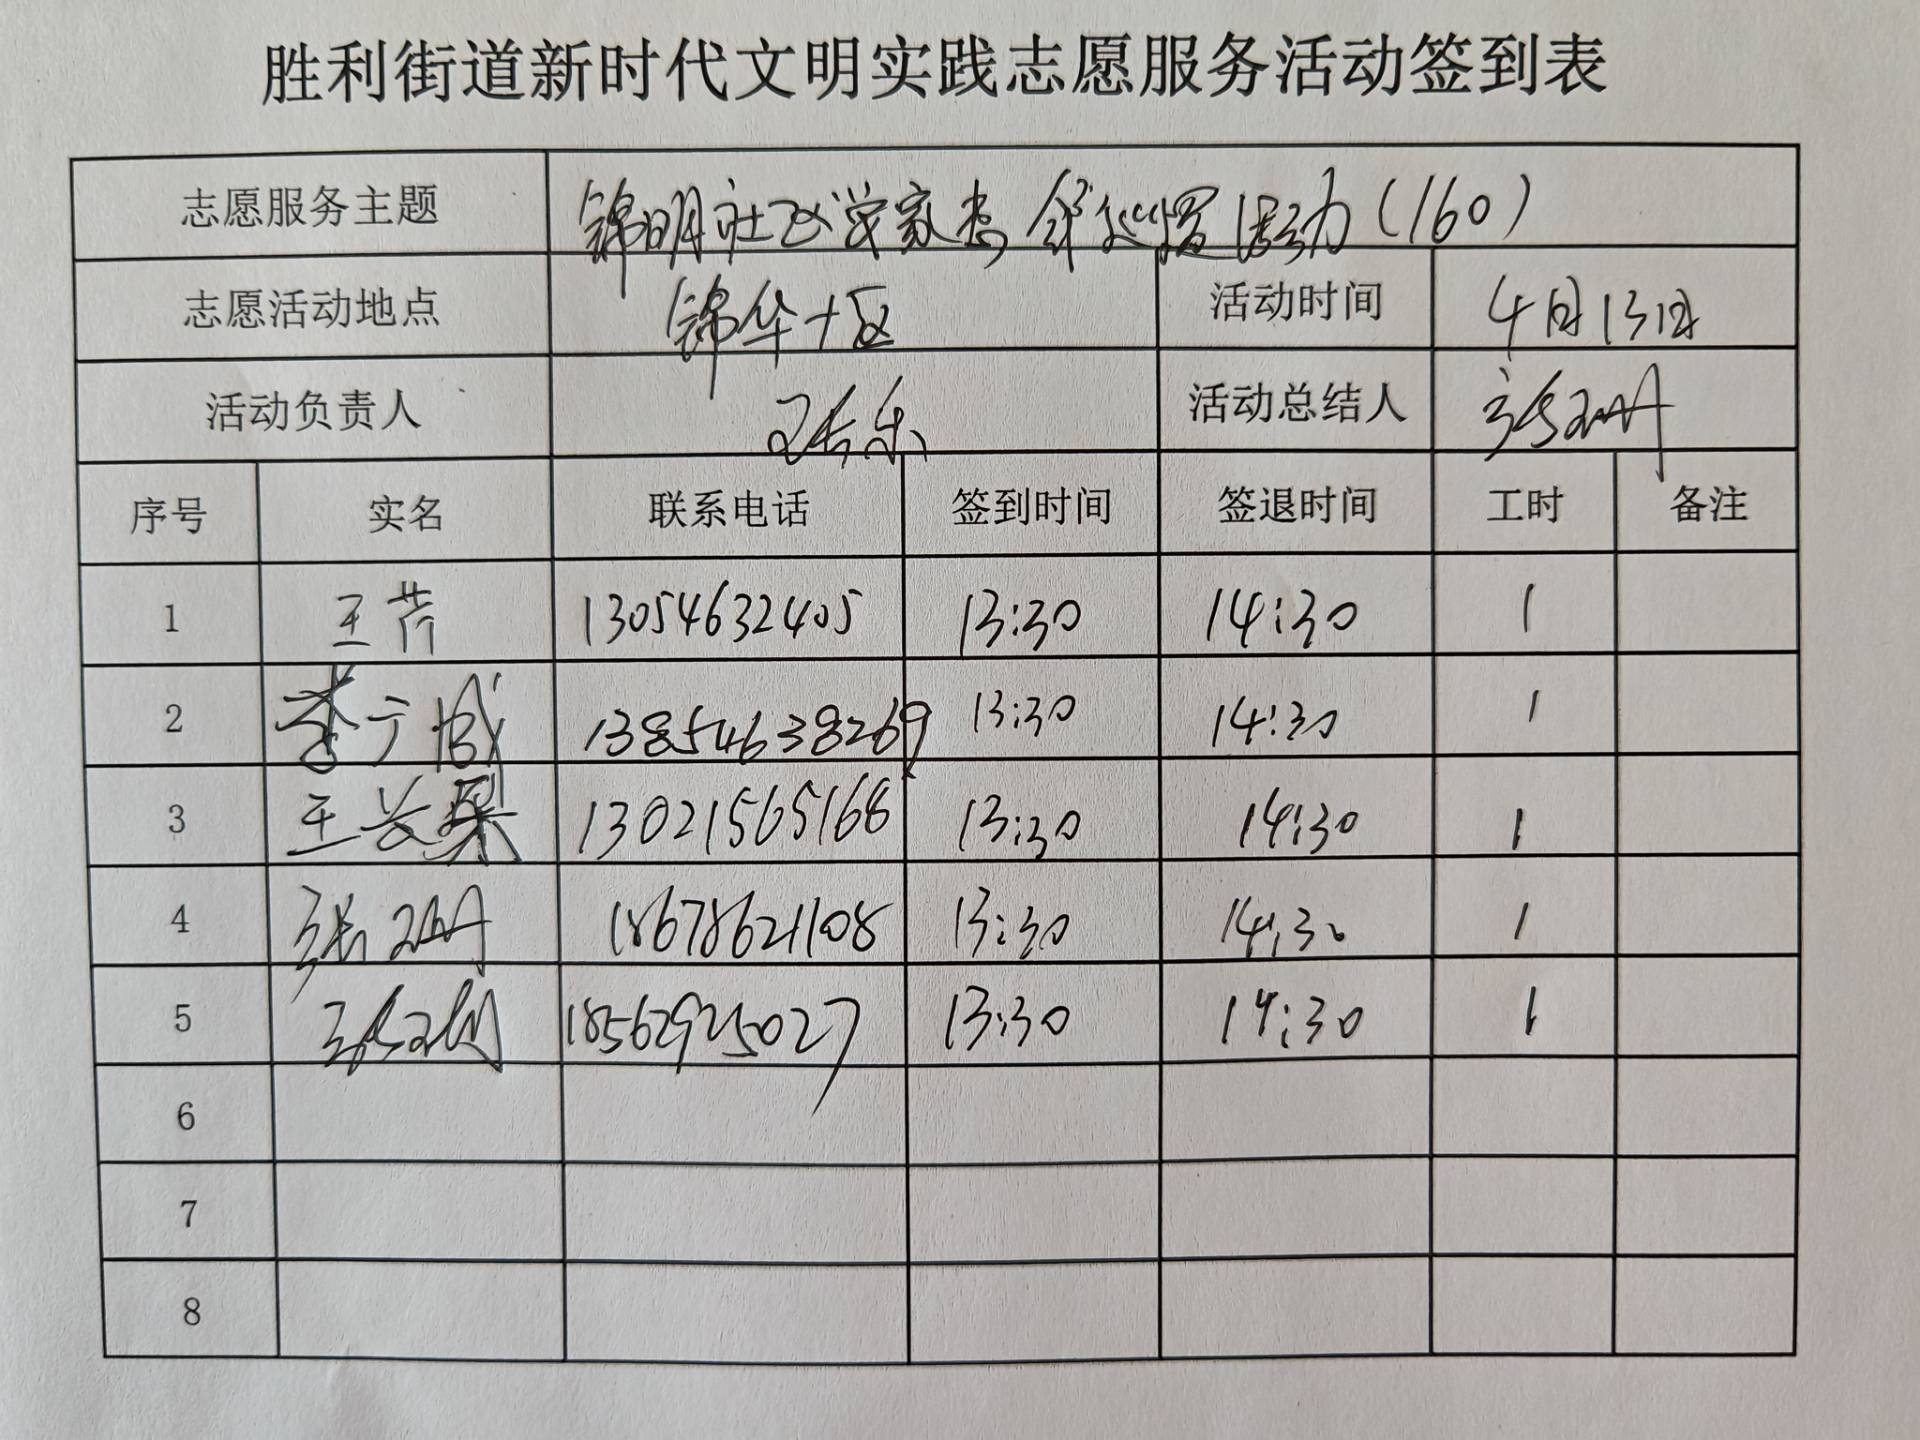 胜利街道新时代文明实践志愿服务活动签到表
志愿服务主题 锦明社区 活动（160）
志愿活动地点 锦华十区 活动时间 4月13日
活动负责人 活动总结人 张
序号 实名 联系电话 签到时间 签退时间 工时 备注
1 王芹 13054632405 13:30 14:30 1
2 李广城 13854638269 13:30 14:30 1
3 王 13021565168 13:30 14:30 1
4 张 18678621108 13:30 14:30 1
5 18562925027 13:30 14:30 1
6
7
8